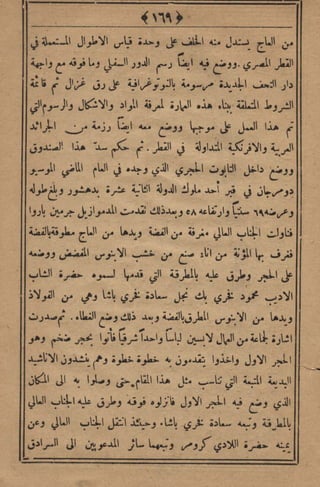 ﴿ ١٦٩ ﴾
من العاج يستدل منه الخلف على وحدة قياس الاطوال المستعملة في
القطر المصري . ووضع فيه ايضاً رسم الدور السفلي وما فوقه مع واجهة
دار التحف الجديدة مرسومة بالفوتوغرافية على رق غزال ثم قائمة
الشروط المتعلقة ببناء هذه العمارة لمعرفة المواد والاشكال والرسوم التي
تم هذا العمل على موجبها ووضع معه ايضاً رزمة من الجرائد
العربية والافرنكية المتداولة في القطر . ثم حكم سدّ هذا الصندوق
ووضع داخل التابوت الحجري الذي وجده في العام الماضي الموسيو
دومرجان في قبر أحد ملوك الدولة الثانية عشرة بدهشور وبلغ طوله
وعرضه ٦٩٩ سنتياً وارتفاعه ٥٨ وبعد ذلك تقدمت المدموازيل جرمين باروا
فناولت الجناب العالي مغرفة من الفضة ويدها من العاج مطوقة بالفضة
فغرف بها المؤنة من اناء صنع من خشب الابنوس المفضض ووضعه
على الحجر وطرق عليه بالمطرقة التي قدمها لسموه حضرة الشاب
الاديب محمود فخري بك نجل سعادة فخري باشا وهي من الفولاذ
ويدها من الابنوس المطرق بالفضة وبعد ذلك وضع الغطاء . ثم صدرت
اشارة لجماعة من العمال لابسين لباساً واحداً شرقياً فأتوا بحجر ضخم وهو
الحجر الاول واخذوا يتقدمون به خطوة خطوة وهم ينشدون الاناشيد
البديعة المتبعة التي تناسب مثل هذا المقام حتى وصلوا به الى المكان
الذي وضع فيه الحجر الاول فانزلوه فوقه وطرق عليه الجناب العالي
بالمطرقة وتبعه سعادة فخري باشا . وحينئذ انتقل الجناب العالي وعن
يمينه حضرة اللادي كرومر وتبعهما سائر المدعوين الى السرادق